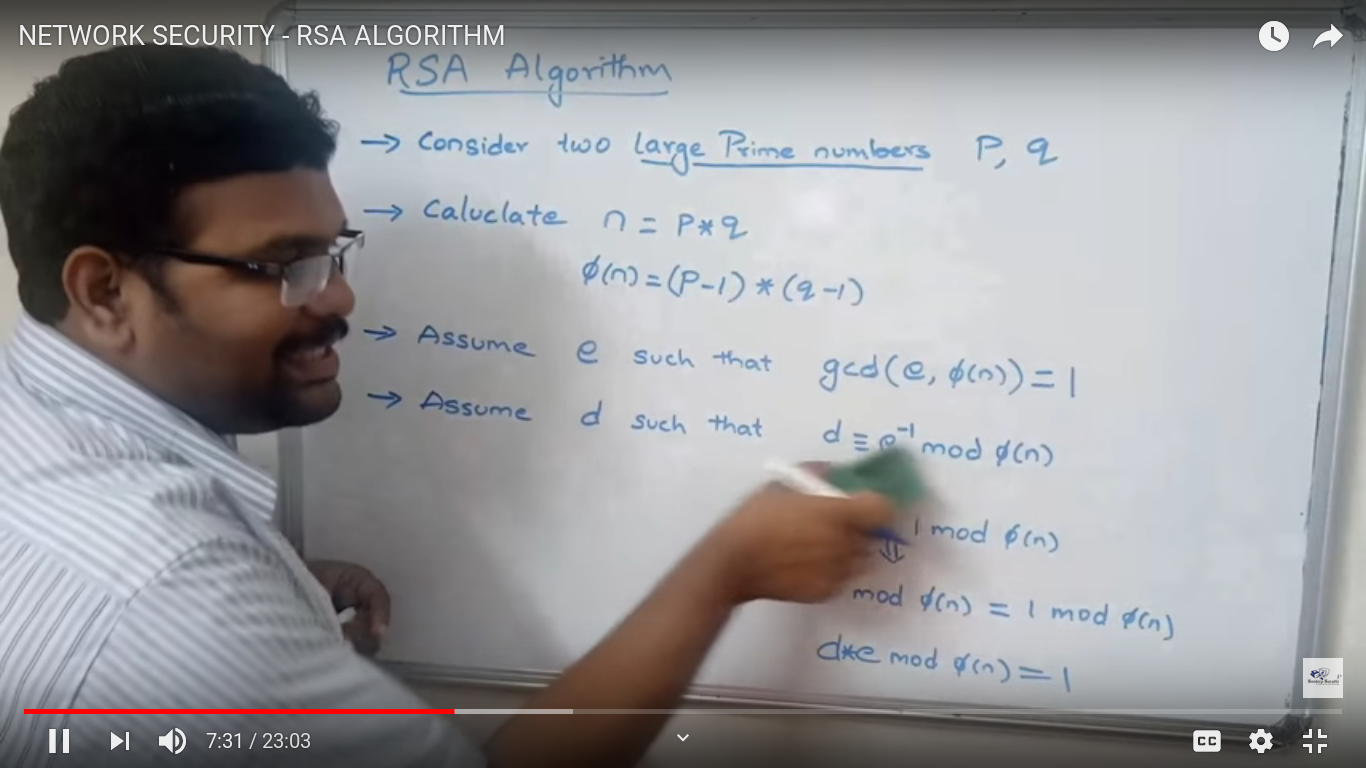 NETWORK SECURITY - RSA ALGORITHM
RSA Algorithm
→ Consider two large Prime numbers P, q
→ Caluclate n = P*q
φ(n) = (P-1) * (q-1)
→ Assume e such that gcd(e, φ(n)) = 1
→ Assume d such that d ≡ e⁻¹ mod φ(n)
1 mod φ(n)
⇓
mod φ(n) = 1 mod φ(n)
d*e mod φ(n) = 1
7:31 / 23:03
CC